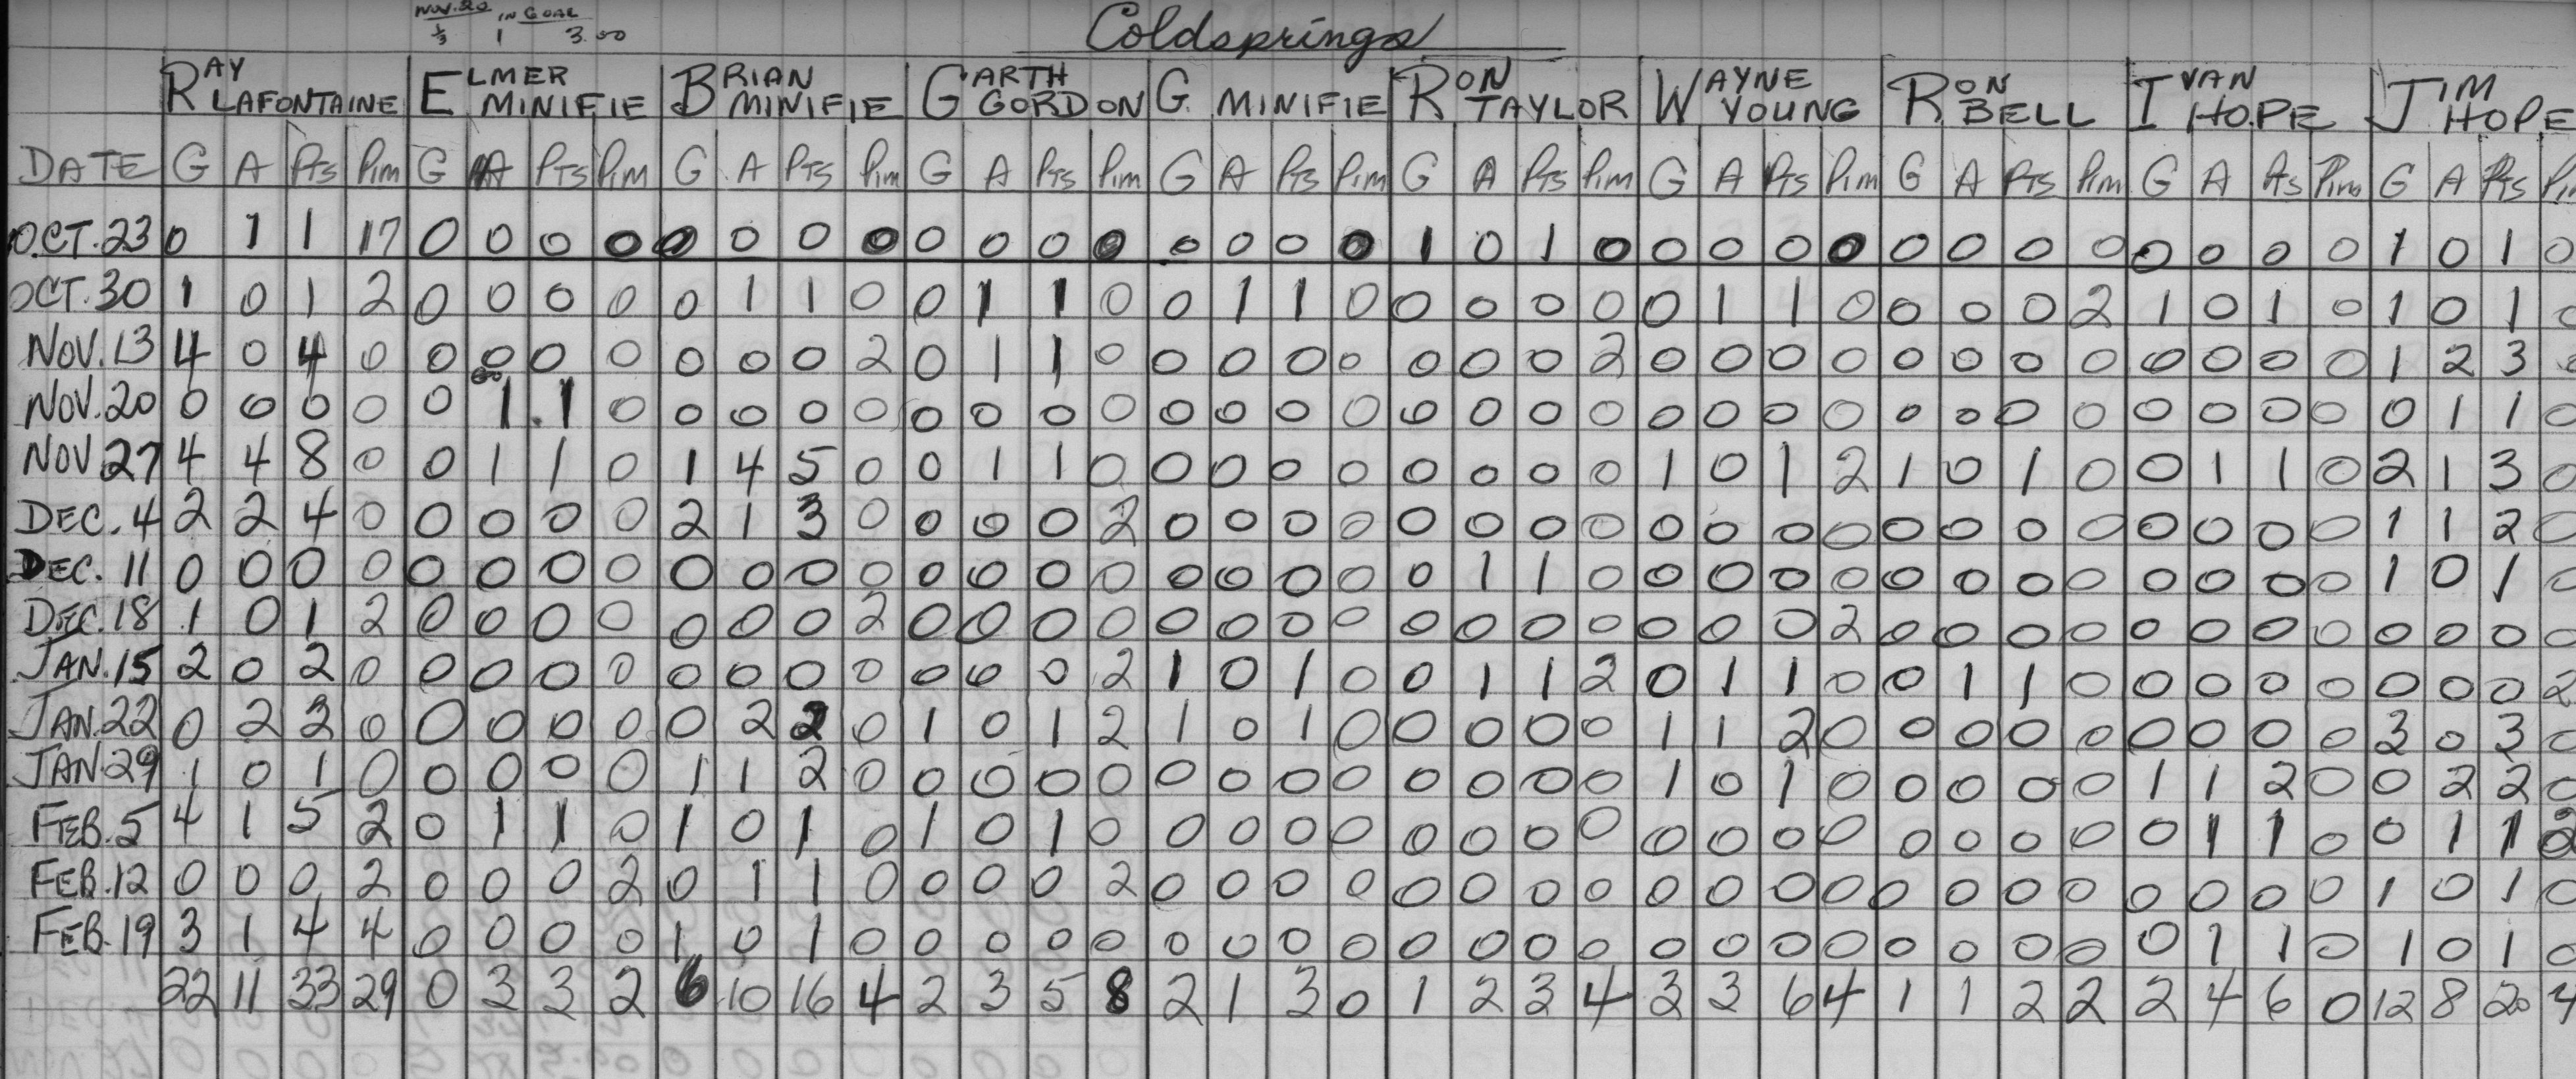 NOV. 20 IN GOAL
1/3 1 3.00
Coldsprings
RAY LAFONTAINE ELMER MINIFIE BRIAN MINIFIE GARTH GORDON G. MINIFIE RON TAYLOR WAYNE YOUNG RON BELL IVAN HOPE JIM HOPE
DATE G A PTS PIM G A PTS PIM G A PTS PIM G A PTS PIM G A PTS PIM G A PTS PIM G A PTS PIM G A PTS PIM G A PTS PIM G A PTS
OCT. 23 0 1 1 17 0 0 0 0 0 0 0 0 0 0 0 0 0 0 0 0 1 0 1 0 0 0 0 0 0 0 0 0 0 0 0 0 1 0 1 0
OCT. 30 1 0 1 2 0 0 0 0 0 1 1 0 0 1 1 0 0 1 1 0 0 0 0 0 0 1 1 0 0 0 0 2 1 0 1 0 1 0 1 0
NOV. 13 4 0 4 0 0 0 0 0 0 0 0 2 0 1 1 0 0 0 0 0 0 0 0 2 0 0 0 0 0 0 0 0 0 0 0 0 1 2 3 0
NOV. 20 0 0 0 0 0 1 1 0 0 0 0 0 0 0 0 0 0 0 0 0 0 0 0 0 0 0 0 0 0 0 0 0 0 0 0 0 0 1 1 0
NOV 27 4 4 8 0 0 1 1 0 1 4 5 0 0 1 1 0 0 0 0 0 0 0 0 0 1 0 1 2 1 0 1 0 0 1 1 0 2 1 3 0
DEC. 4 2 2 4 0 0 0 0 0 2 1 3 0 0 0 0 2 0 0 0 0 0 0 0 0 0 0 0 0 0 0 0 0 0 0 0 0 1 1 2 0
DEC. 11 0 0 0 0 0 0 0 0 0 0 0 0 0 0 0 0 0 0 0 0 0 1 1 0 0 0 0 0 0 0 0 0 0 0 0 0 1 0 1 0
DEC. 18 1 0 1 2 0 0 0 0 0 0 0 2 0 0 0 0 0 0 0 0 0 0 0 0 0 0 0 2 0 0 0 0 0 0 0 0 0 0 0 0
JAN. 15 2 0 2 0 0 0 0 0 0 0 0 0 0 0 0 2 1 0 1 0 0 1 1 2 0 1 1 0 0 1 1 0 0 0 0 0 0 0 0 2
JAN. 22 0 2 2 0 0 0 0 0 0 2 2 0 1 0 1 2 1 0 1 0 0 0 0 0 1 1 2 0 0 0 0 0 0 0 0 0 3 0 3 0
JAN. 29 1 0 1 0 0 0 0 0 1 1 2 0 0 0 0 0 0 0 0 0 0 0 0 0 1 0 1 0 0 0 0 0 1 1 2 0 0 2 2 0
FEB. 5 4 1 5 2 0 1 1 0 1 0 1 0 1 0 1 0 0 0 0 0 0 0 0 0 0 0 0 0 0 0 0 0 0 1 1 0 0 1 1 2
FEB. 12 0 0 0 2 0 0 0 2 0 1 1 0 0 0 0 2 0 0 0 0 0 0 0 0 0 0 0 0 0 0 0 0 0 0 0 0 1 0 1 0
FEB. 19 3 1 4 4 0 0 0 0 1 0 1 0 0 0 0 0 0 0 0 0 0 0 0 0 0 0 0 0 0 0 0 0 0 1 1 0 1 0 1 0
22 11 33 29 0 3 3 2 6 10 16 4 2 3 5 8 2 1 3 0 1 2 3 4 3 3 6 4 1 1 2 2 2 4 6 0 12 8 20 4